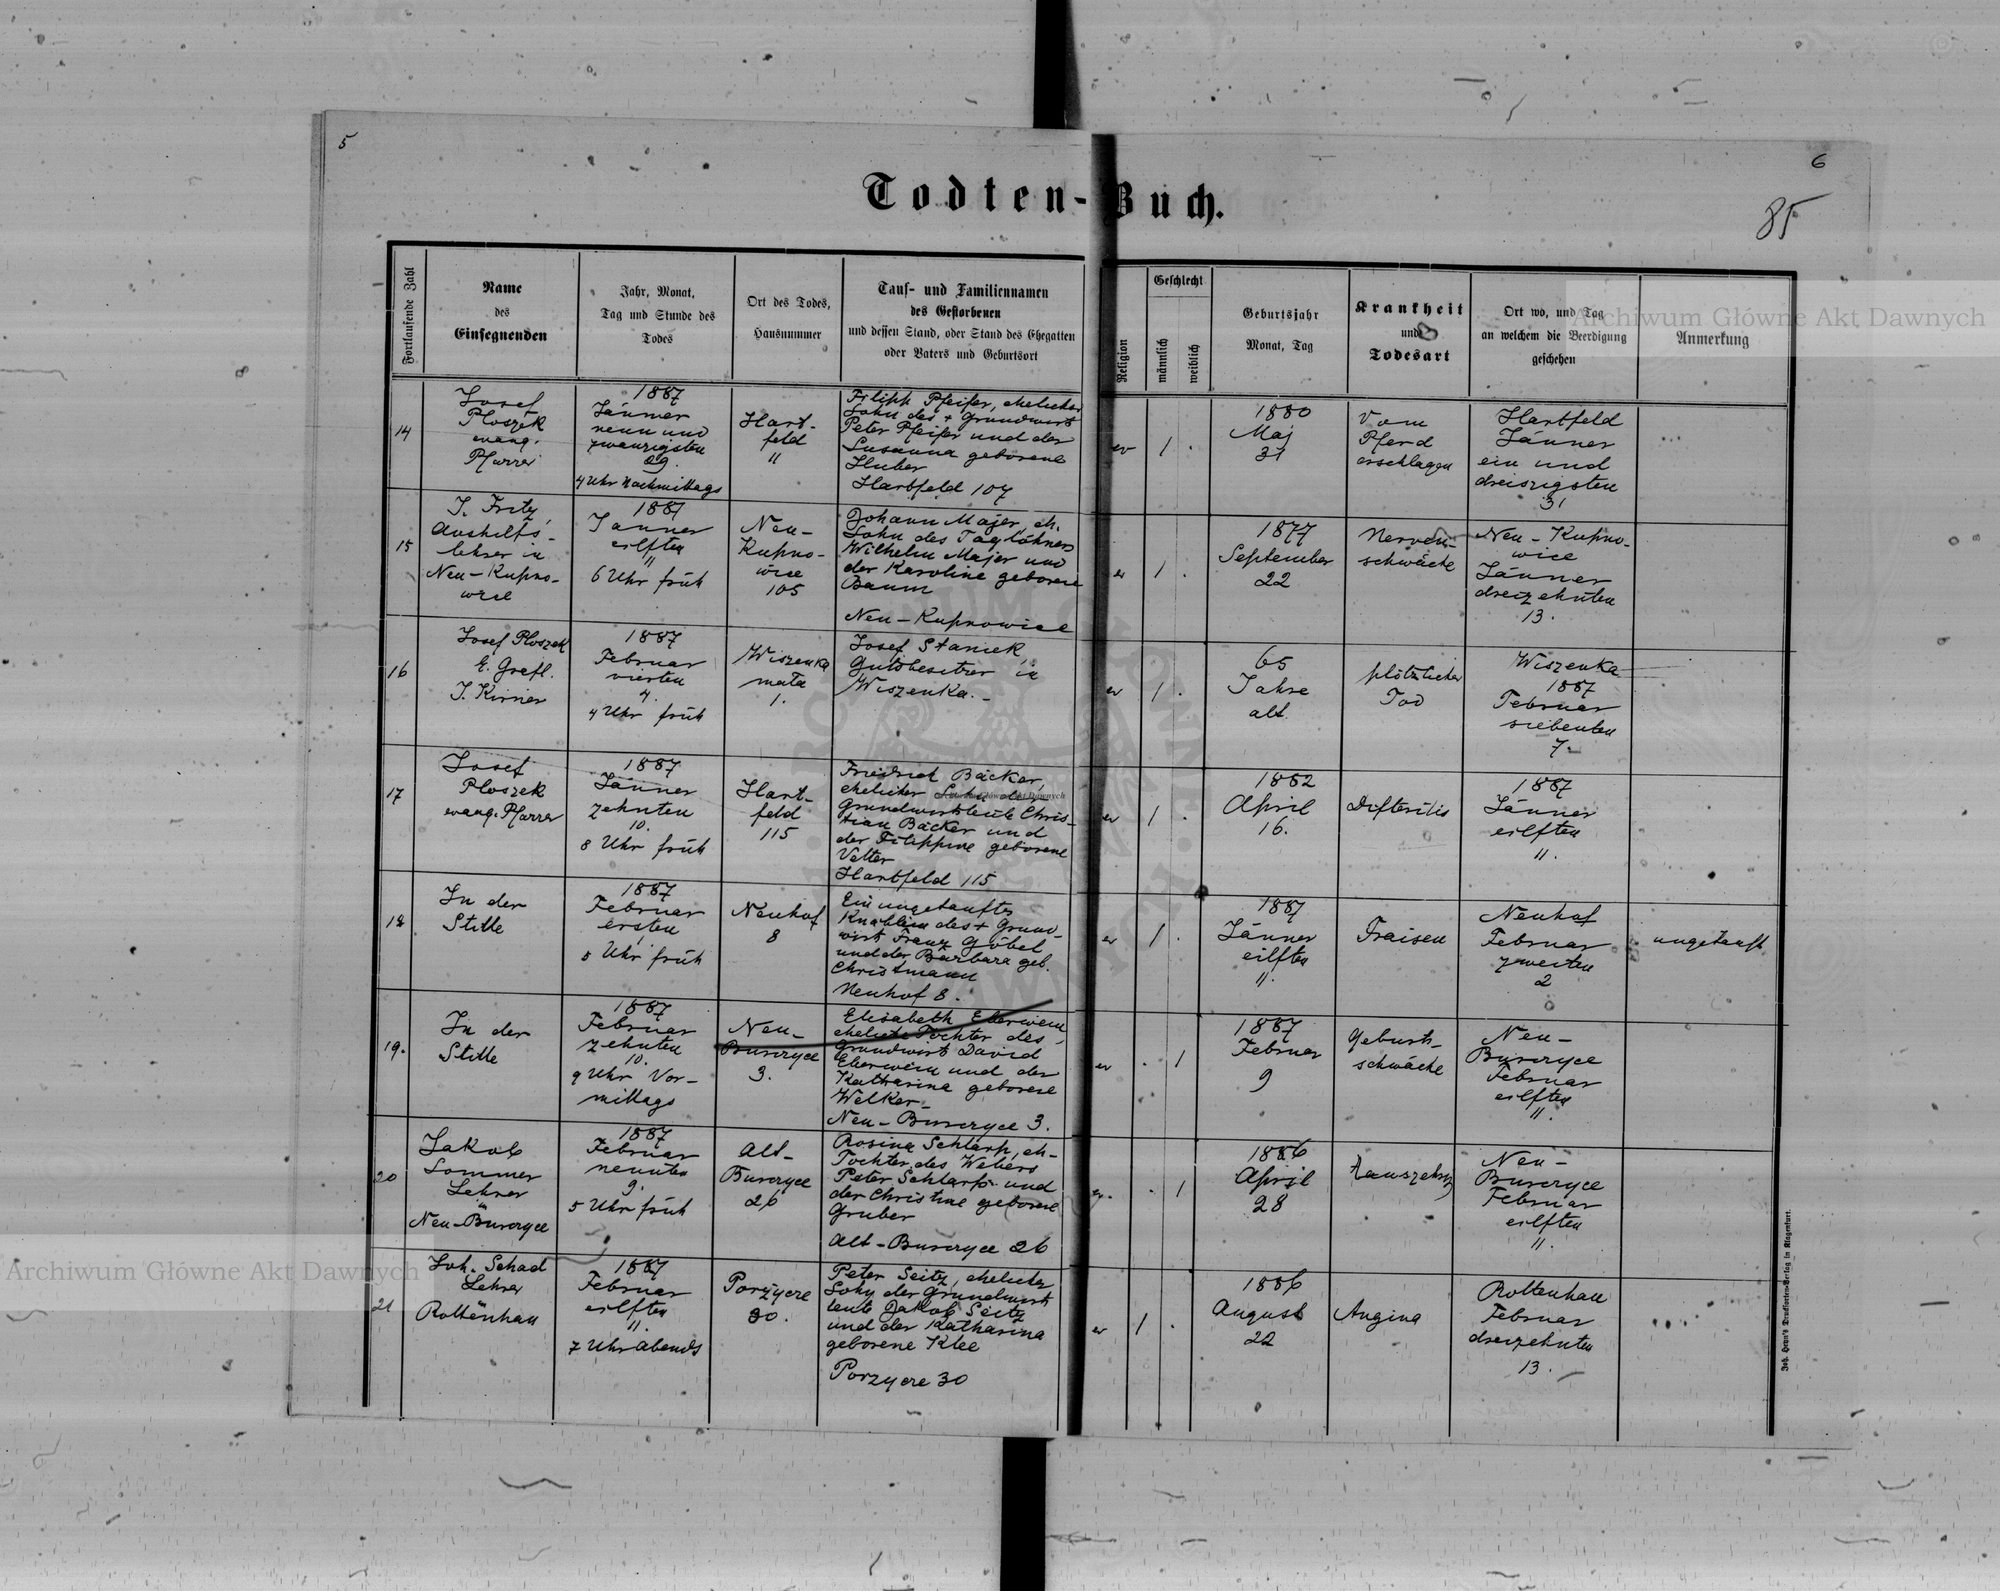 5
6
85
Todten-Buch.
Fortlaufende Zahl
Name
des
Einsegnenden
Jahr, Monat,
Tag und Stunde des
Todes
Ort des Todes,
Hausnummer
Tauf- und Familiennamen
des Gestorbenen
und dessen Stand, oder Stand des Ehegatten
oder Vaters und Geburtsort
Religion
Geschlecht
männlich
weiblich
Geburtsjahr
Monat, Tag
Krankheit
und
Todesart
Ort wo, und Tag
an welchem die Beerdigung
geschehen
Anmerkung
14
Josef
Ploszek
evang.
Pfarrer
1887
Jänner
neun und
zwanzigsten
29.
4 Uhr Nachmittags
Hart-
feld
11
Filipp Pfeifer, ehelicher
Sohn des + Grundwirt
Peter Pfeifer und der
Susanna geborene
Huber
Hartfeld 107
ev
1
1880
Mai
31
Vom
Pferd
erschlagen
Hartfeld
Jänner
ein und
dreiszigsten
31
15
J. Fritz,
Aushilfs-
lehrer in
Neu-Kupno-
wice
1887
Janner
eilften
11
6 Uhr früh
Neu-
Kupno-
wice
105
Johann Majer, eh.
Sohn des Taglöhners
Wilhelm Majer und
der Karoline geborene
Baum
Neu-Kupnowice
ev
1
1877
September
22
Nerven-
schwäche
Neu-Kupno-
wice
Jänner
dreizehnten
13.
16
Josef Ploszek
E. Grefl.
J. Kirner
1887
Februar
vierten
4.
4 Uhr früh
Wiszenka
mała
1.
Josef Staniek
Gutsbesitzer in
Wiszenka.-
ev
1
65
Jahre
alt
plötzlicher
Tod
Wiszenka
1887
Februar
siebenten
7.-
17
Josef
Ploszek
evang. Pfarrer
1887
Jänner
zehnten
10.
8 Uhr früh
Hart-
feld
115
Friedrich Bäcker,
ehelicher Sohn der
Grundwirtsleute Chris-
tian Bäcker und
der Filippine geborene
Vetter
Hartfeld 115
ev
1
1882
April
16.
Difteritis
1887
Jänner
eilften
11.
18
In der
Stille
1887
Februar
ersten
5 Uhr früh
Neuhof
8
Ein ungetauftes
Knäblein des + Grund-
wirt Franz Göbel
und der Barbara geb.
Christmann
Neuhof 8.
ev
1
1887
Jänner
eilften
11.
Fraisen
Neuhof
Februar
zweiten
2
ungetauft
19.
In der
Stille
1887
Februar
zehnten
10.
9 Uhr Vor-
mittags
Neu-
Burczyce
3.
Elisabeth Eberwein,
eheliche Tochter des
Grundwirt David
Eberwein und der
Katharina geborene
Welker-
Neu-Burczyce 3.
ev
1
1887
Februar
9
Geburts-
schwäche
Neu-
Burczyce
Februar
eilften
11.
20
Jakob
Sommer
Lehrer
in
Neu-Burczyce
1887
Februar
neunten
9.
5 Uhr früh
Alt-
Burczyce
26
Rosina Schlarp, eh-
Tochter des Webers
Peter Schlarp und
der Christine geborene
Gruber
Alt-Burczyce 26
ev.
1
1886
April
28
Neu-
Burczyce
Februar
eilften
11.
21
Joh. Schad
Lehrer
in
Rottenhan
1887
Februar
eilften
11.
7 Uhr Abends
Porzycze
30.
Peter Seitz, ehelicher
Sohn der Grundwirt
leute Jakob Seitz
und der Katharina
geborene Klee
Porzycze 30
ev
1
1886
August
22
Angina
Rottenhan
Februar
dreizehnten
13.
Joh. Heyn's Drucksorten-Verlag in Klagenfurt.
Archiwum Główne Akt Dawnych
Archiwum Główne Akt Dawnych